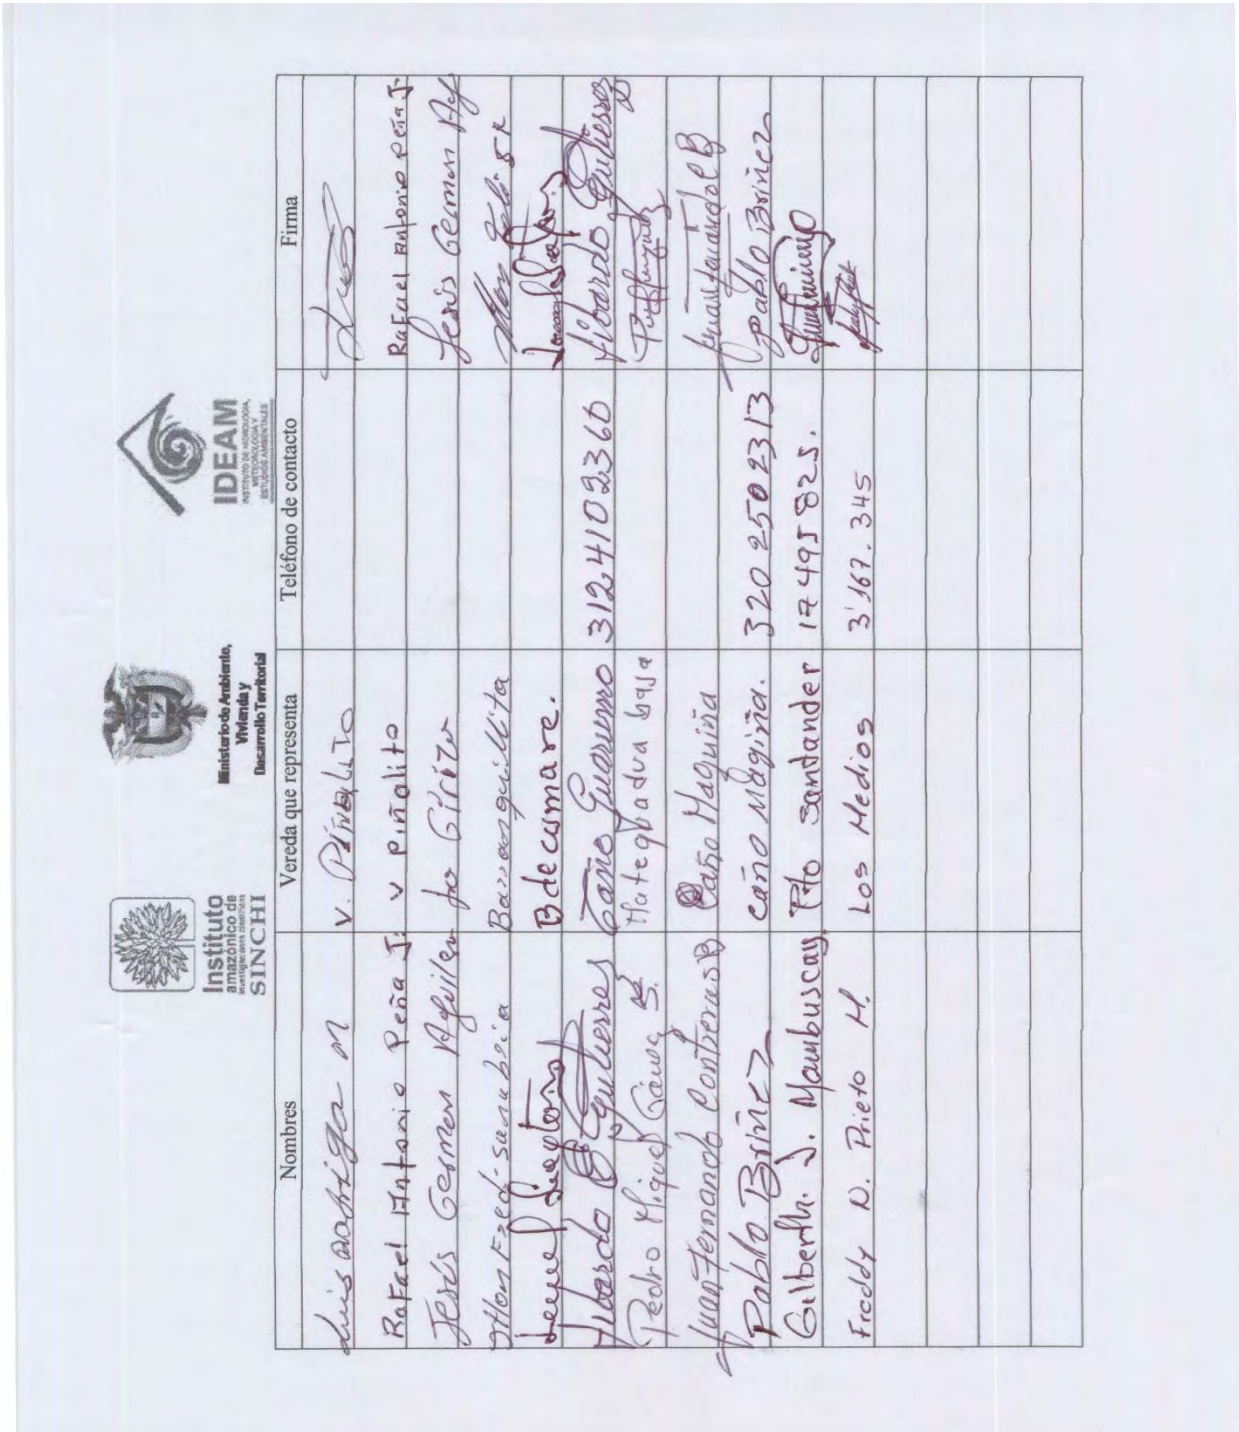 Instituto
amazónico de
investigaciones científicas
SINCHI
Ministerio de Ambiente,
Vivienda y
Desarrollo Territorial
IDEAM
INSTITUTO DE HIDROLOGÍA,
METEOROLOGÍA Y
ESTUDIOS AMBIENTALES
Nombres Vereda que representa Teléfono de contacto Firma
Luis M V. Piñalito Luis
Rafael Antonio Peña J. V Piñalito Rafael Antonio Peña J.
Jesús German Aguilar Jesús German
Barranquillita
Bdecumare.
Gutierres Caño Guarumo 3124102360 Gutierres
Pedro Miguel Mateguadua baja
Juan Fernando Contreras B Caño Maquiña
Pablo Briñez caño Magiña. 320 250 2313 Pablo Briñez
Gilberth. J. Mambuscay Pto Santander 17495825.
Freddy N. Prieto M. Los Medios 3'167.345